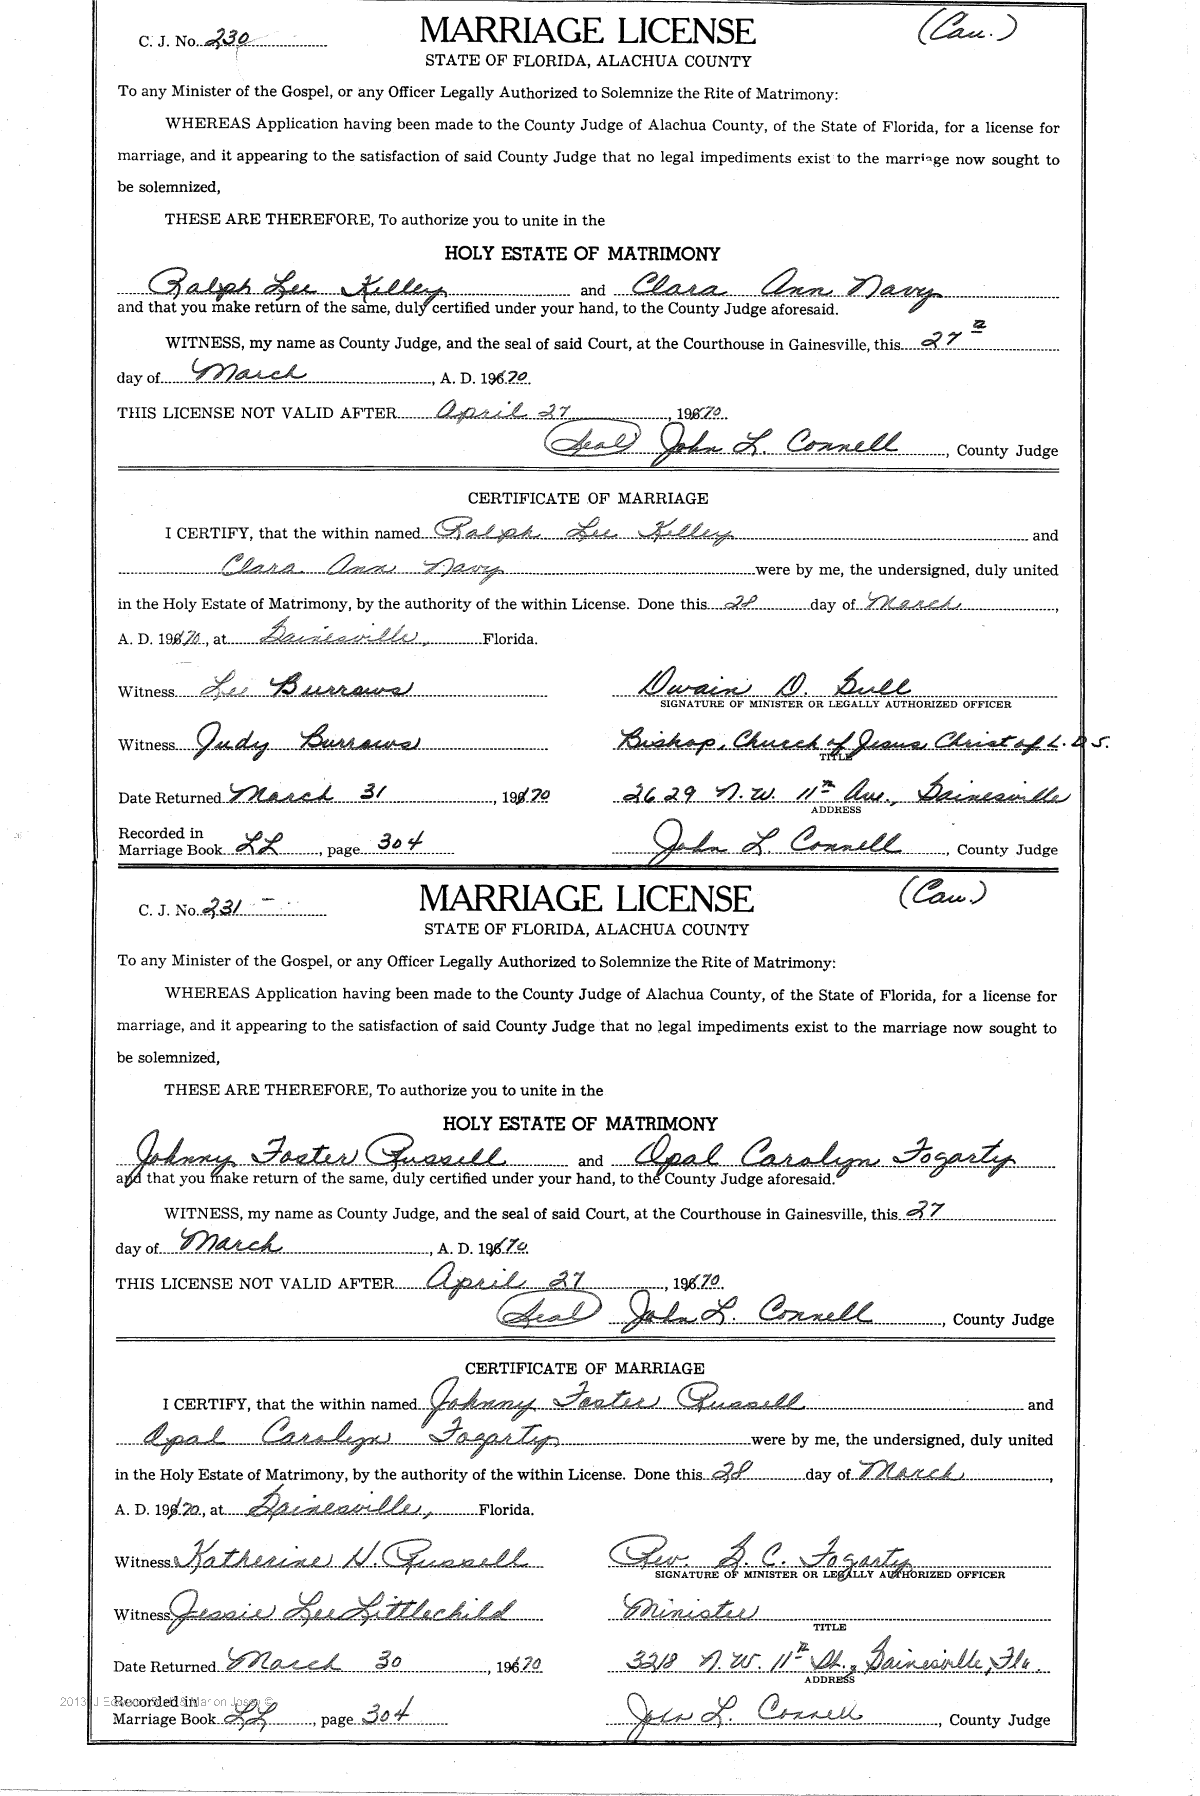 C. J. No. 230 MARRIAGE LICENSE (Cau.)
STATE OF FLORIDA, ALACHUA COUNTY
To any Minister of the Gospel, or any Officer Legally Authorized to Solemnize the Rite of Matrimony:
WHEREAS Application having been made to the County Judge of Alachua County, of the State of Florida, for a license for
marriage, and it appearing to the satisfaction of said County Judge that no legal impediments exist to the marriage now sought to
be solemnized,
THESE ARE THEREFORE, To authorize you to unite in the
HOLY ESTATE OF MATRIMONY
Ralph Lee Kelley and Clara Ann Navy
and that you make return of the same, duly certified under your hand, to the County Judge aforesaid.
WITNESS, my name as County Judge, and the seal of said Court, at the Courthouse in Gainesville, this 27
day of March, A. D. 1970.
THIS LICENSE NOT VALID AFTER April 27, 1970.
(Seal) John L. Connell, County Judge
CERTIFICATE OF MARRIAGE
I CERTIFY, that the within named Ralph Lee Kelley and
Clara Ann Navy were by me, the undersigned, duly united
in the Holy Estate of Matrimony, by the authority of the within License. Done this 28 day of March,
A. D. 1970, at Gainesville, Florida.
Witness Lee Burrows Dwain D. Gull
SIGNATURE OF MINISTER OR LEGALLY AUTHORIZED OFFICER
Witness Judy Burrows Bishop, Church of Jesus Christ of L. D. S.
TITLE
Date Returned March 31, 1970 2629 N. W. 11th Ave., Gainesville
ADDRESS
Recorded in
Marriage Book LL, page 304 John L. Connell, County Judge
C. J. No. 231 MARRIAGE LICENSE (Cau.)
STATE OF FLORIDA, ALACHUA COUNTY
To any Minister of the Gospel, or any Officer Legally Authorized to Solemnize the Rite of Matrimony:
WHEREAS Application having been made to the County Judge of Alachua County, of the State of Florida, for a license for
marriage, and it appearing to the satisfaction of said County Judge that no legal impediments exist to the marriage now sought to
be solemnized,
THESE ARE THEREFORE, To authorize you to unite in the
HOLY ESTATE OF MATRIMONY
Johnny Foster Russell and Opal Carolyn Fogarty
and that you make return of the same, duly certified under your hand, to the County Judge aforesaid.
WITNESS, my name as County Judge, and the seal of said Court, at the Courthouse in Gainesville, this 27
day of March, A. D. 1970
THIS LICENSE NOT VALID AFTER April 27, 1970.
(Seal) John L. Connell, County Judge
CERTIFICATE OF MARRIAGE
I CERTIFY, that the within named Johnny Foster Russell and
Opal Carolyn Fogarty were by me, the undersigned, duly united
in the Holy Estate of Matrimony, by the authority of the within License. Done this 28 day of March,
A. D. 1970, at Gainesville, Florida.
Witness Katherine H. Russell Rev. G. C. Fogarty
SIGNATURE OF MINISTER OR LEGALLY AUTHORIZED OFFICER
Witness Jessie Lee Littlechild Minister
TITLE
Date Returned March 30, 1970 3218 N. W. 11th St., Gainesville, Fla.
ADDRESS
Recorded in
Marriage Book LL, page 304 John L. Connell, County Judge